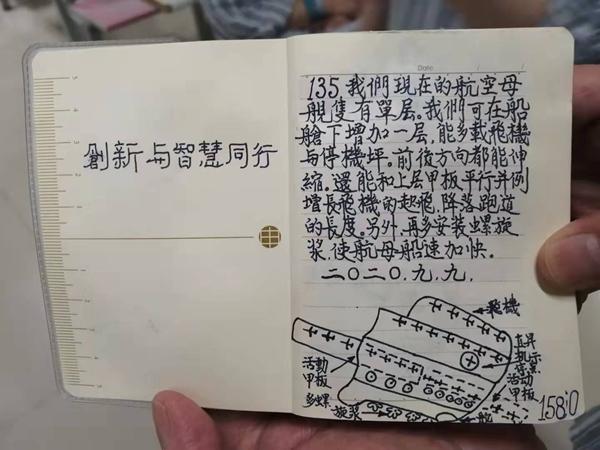 創新与智慧同行
Date
135.我們現在的航空母
艦隻有單层。我們可在船
艙下增加一层,能多載飛機
与停機坪。前後方向都能伸
縮。還能和上层甲板平行并例
增長飛機的起飛,降落跑道
的長度。另外,再多安装螺旋
浆,使航母船速加快。
二〇二〇.九.九.
飛機
直昇
机示
停点
活動
甲板
活動
甲板
多螺
旋浆
158:0